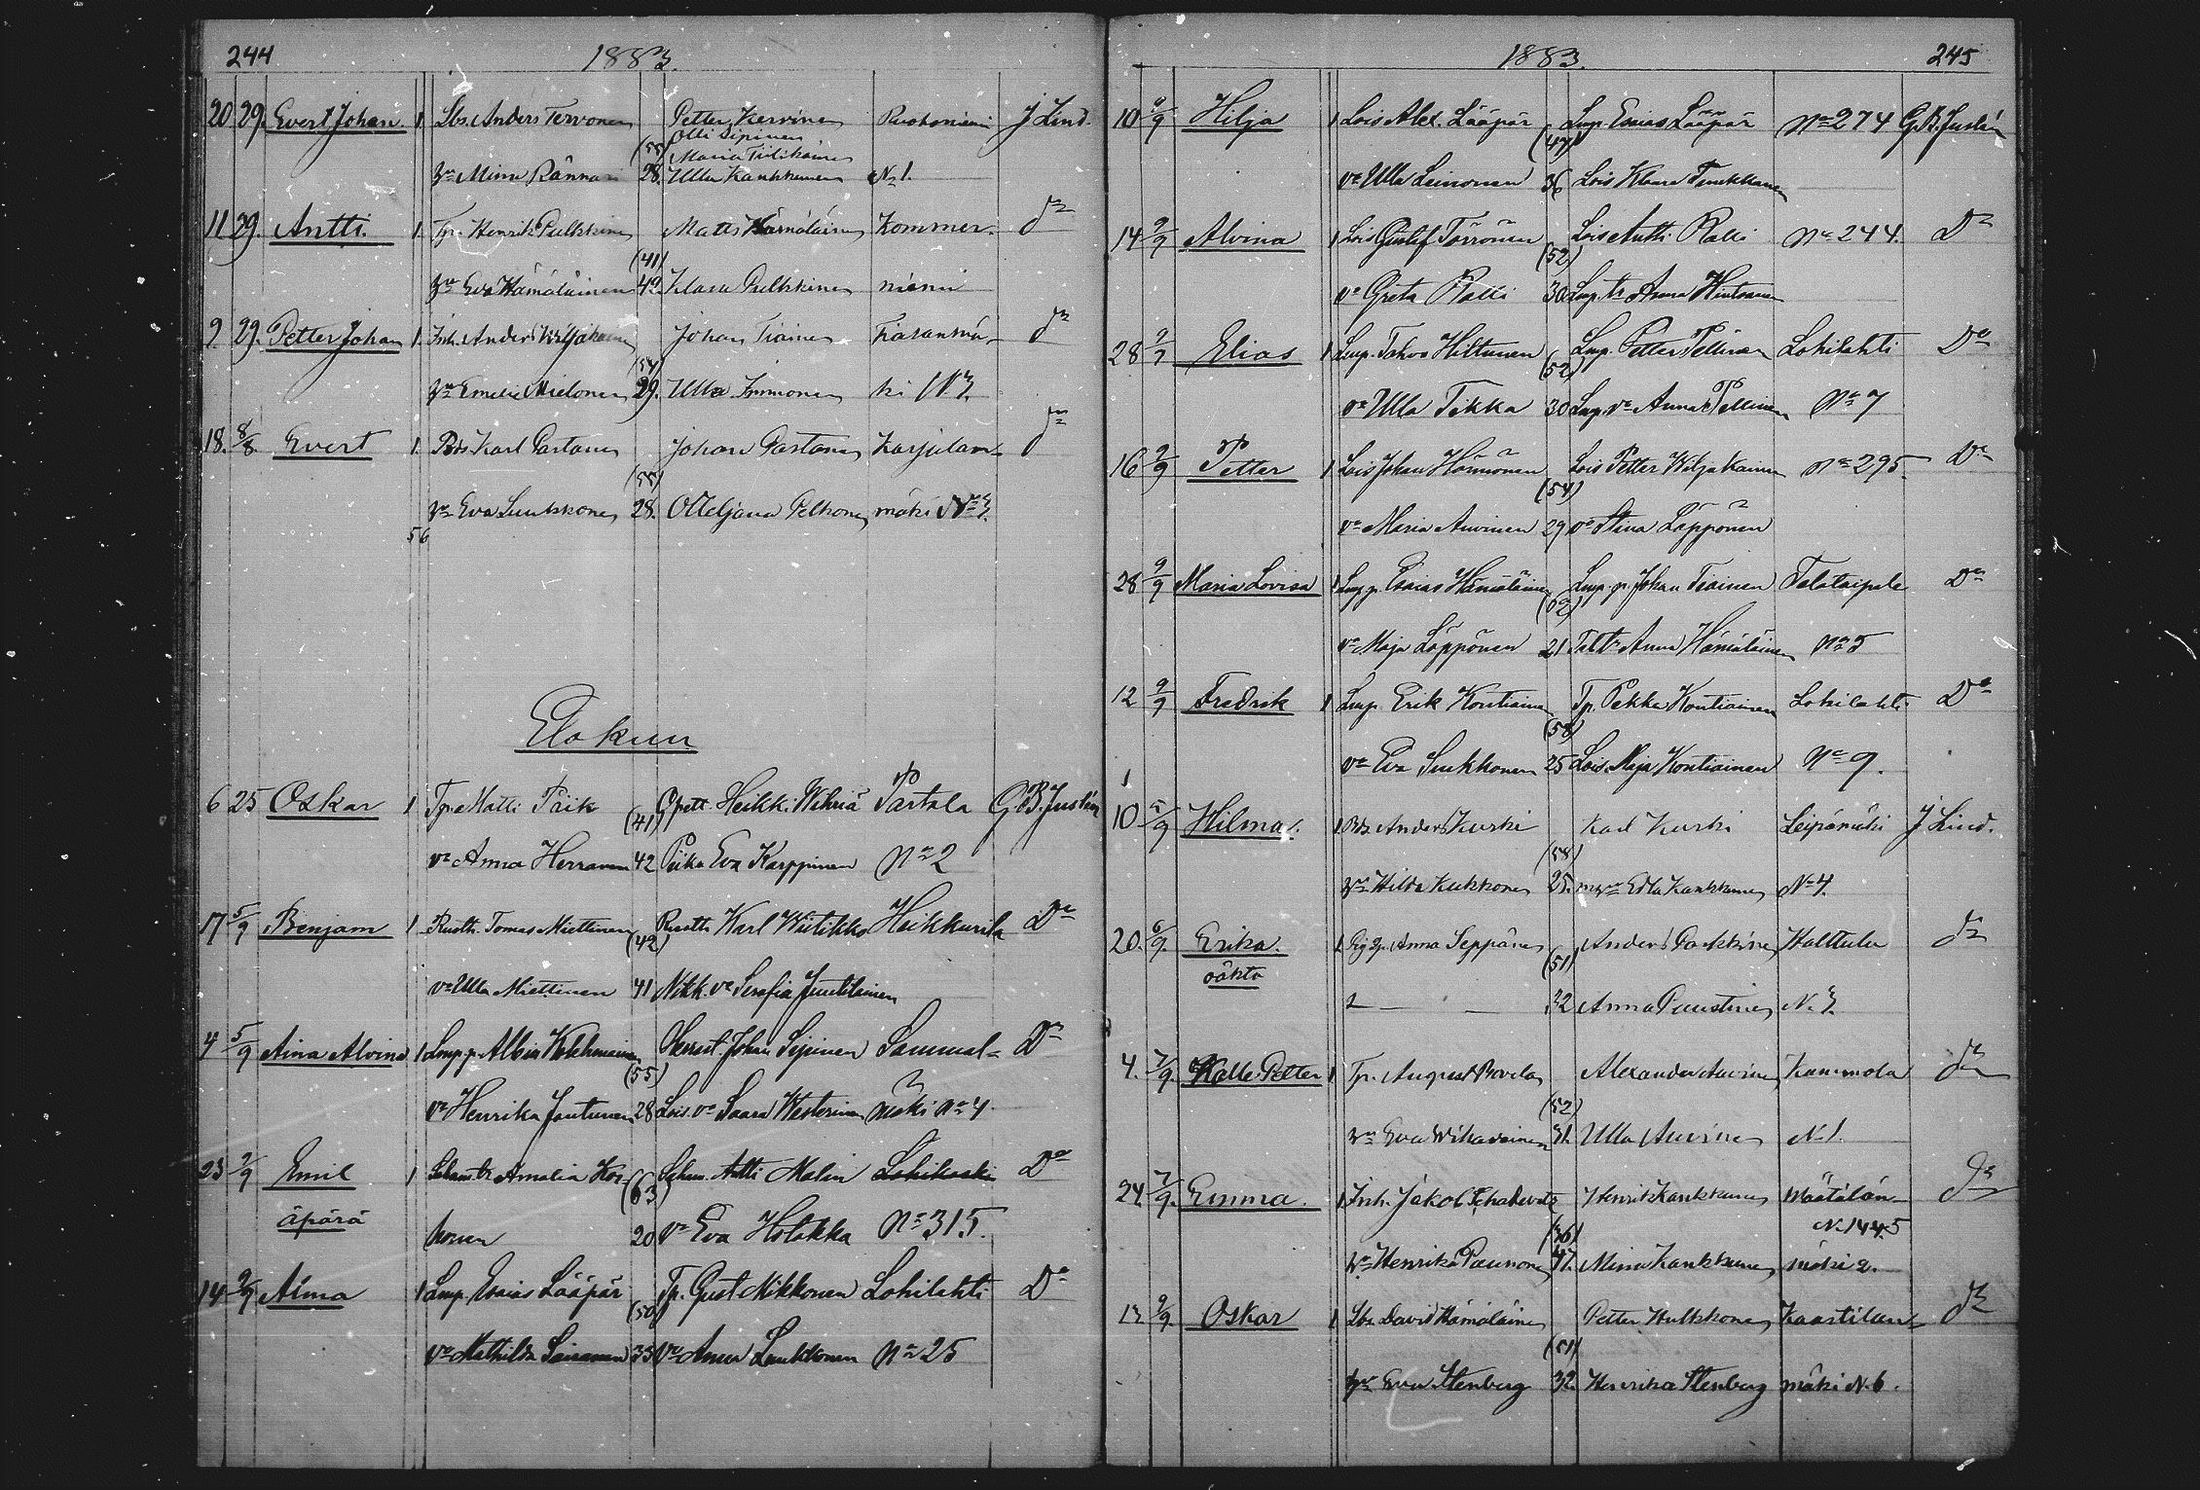 244 1883.
20 29. Evert Johan 1. Lbs. Anders Tervonen Petter Kervinen Ruokoniemi J Lind.
Olli Sipinen
(55) Maria Tiilikainen
Vmo Minna Rännäri 28. Ulla Kankkunen No 1.
11 29. Antti. 1. Tp. Henrik Pulkkinen Matts Hämäläinen Kommer- Do
(41)
Vmo Eva Hämäläinen 42. Klara Pulkkinen niemi
9. 29. Petter Johan 1. Inh. Anders Wiljakainen Johan Tiainen Do
(54)
Vmo Emelie Mielonen 29. Ulla Immonen ki No 3.
18. 8/8. Evert 1. Karl Partanen Johan Partanen Karjulan- Do
(55)
Vmo Eva Luukkonen 28. Otteljana Pelkonen mäki No 3.
56
Elokuu
6 25 Oskar 1 Tp. Matti Päik Heikki Wihriä Partala G. B. Juslén
(41)
vo Anna Herranen 42 Piika Eva Karppinen No 2
17 5/9 Benjam 1 Ruoth. Tomas Miettinen Ruoth Karl Wiitikko Heikkurila Do
(42)
vo Ulla Miettinen 41 Nikk. vo Serafia Juutilainen
4 5/9 Aina Alvina 1 Lmp. p. Albin Kokkonainen Johan Sipinen Sammal- Do
(55)
vo Henrika Jantunen 28 Lois. vo Saara Westerinen mäki No 4
23 2/9 Emil 1 Amalia Kor- Antti Malin Lohikoski Do
(63)
äpärä honen 20 vo Eva Holokka No 315.
14 9/9 Alma 1 Lmp. Esaias Lääpär Tp. Gust Nikkonen Lohilahti Do
(50)
vo Mathilda Sairanen 33 vo Anna Luukkonen No 25
1883. 245
10 9/9 Hilja 1 Lois Alex. Lääpär Lmp. Esaias Lääpär No 274 G. B. Juslén
(47)
vo Ulla Leinonen 36 Lois Klaara Turkkanen
14 9/9 Alvina 1 Lois Gustaf Törrönen Lois Antti Ralli No 244. Do
(52)
vo Greta Ralli 30 Lmp. tr Anna Hintsanen
28 9/7 Elias 1 Lmp. Tahvo Hiltunen Lmp. Petter Pellinen Lohilahti Do
(52)
vo Ulla Tikka 30 Lmp. vo Anna Pellinen No 7
16 9/9 Petter 1 Lois Johan Hämönen Lois Petter Wiljakainen No 295 Do
(54)
vo Maria Auvinen 29 vo Stina Läppönen
28 9/9 Maria Lovisa 1 Lmp p. Esaias Hämäläinen Lmp. p. Johan Tiainen Telataipale Do
(62)
vo Maja Läppönen 21 Tal. tr Anna Hämäläinen No 5
12 9/9 Fredrik 1 Lmp. Erik Kontiainen Tp. Pekka Kontiainen Lohilahti Do
(58)
vo Eva Suikkonen 25 Lois. Maja Kontiainen No 9.
1
10 5/9 Hilma. 1 Anders Kurki Karl Kurki Leipämäki J Lind.
(58)
Vmo Hilda Kukkonen 25. Edla Kankkunen No 4.
20. 6/9. Erika. 1 Anna Seppänen Anders Parkkinen Walttula Do
(51)
oäkta 32 Anna Puustinen No 3.
4. 7/9. Kalle Petter 1 Tp. August Rovila Alexander Auvinen Kammola Do
(52)
Vmo Eva Wihavainen 31. Ulla Auvinen No 1.
24. 7/9. Emma. 1 Inh. Jakob Henrik Kankkunen Määtälän- Do
(36) No. 144.5
Vmo Henrika Paunonen 47. Minna Kankkunen mäki 2.
13 9/9. Oskar 1 Lbs. David Hämäläinen Petter Hulkkonen Kaartilan- Do
(51)
Vmo Eva Stenberg 32. Henrika Stenberg mäki No 6.